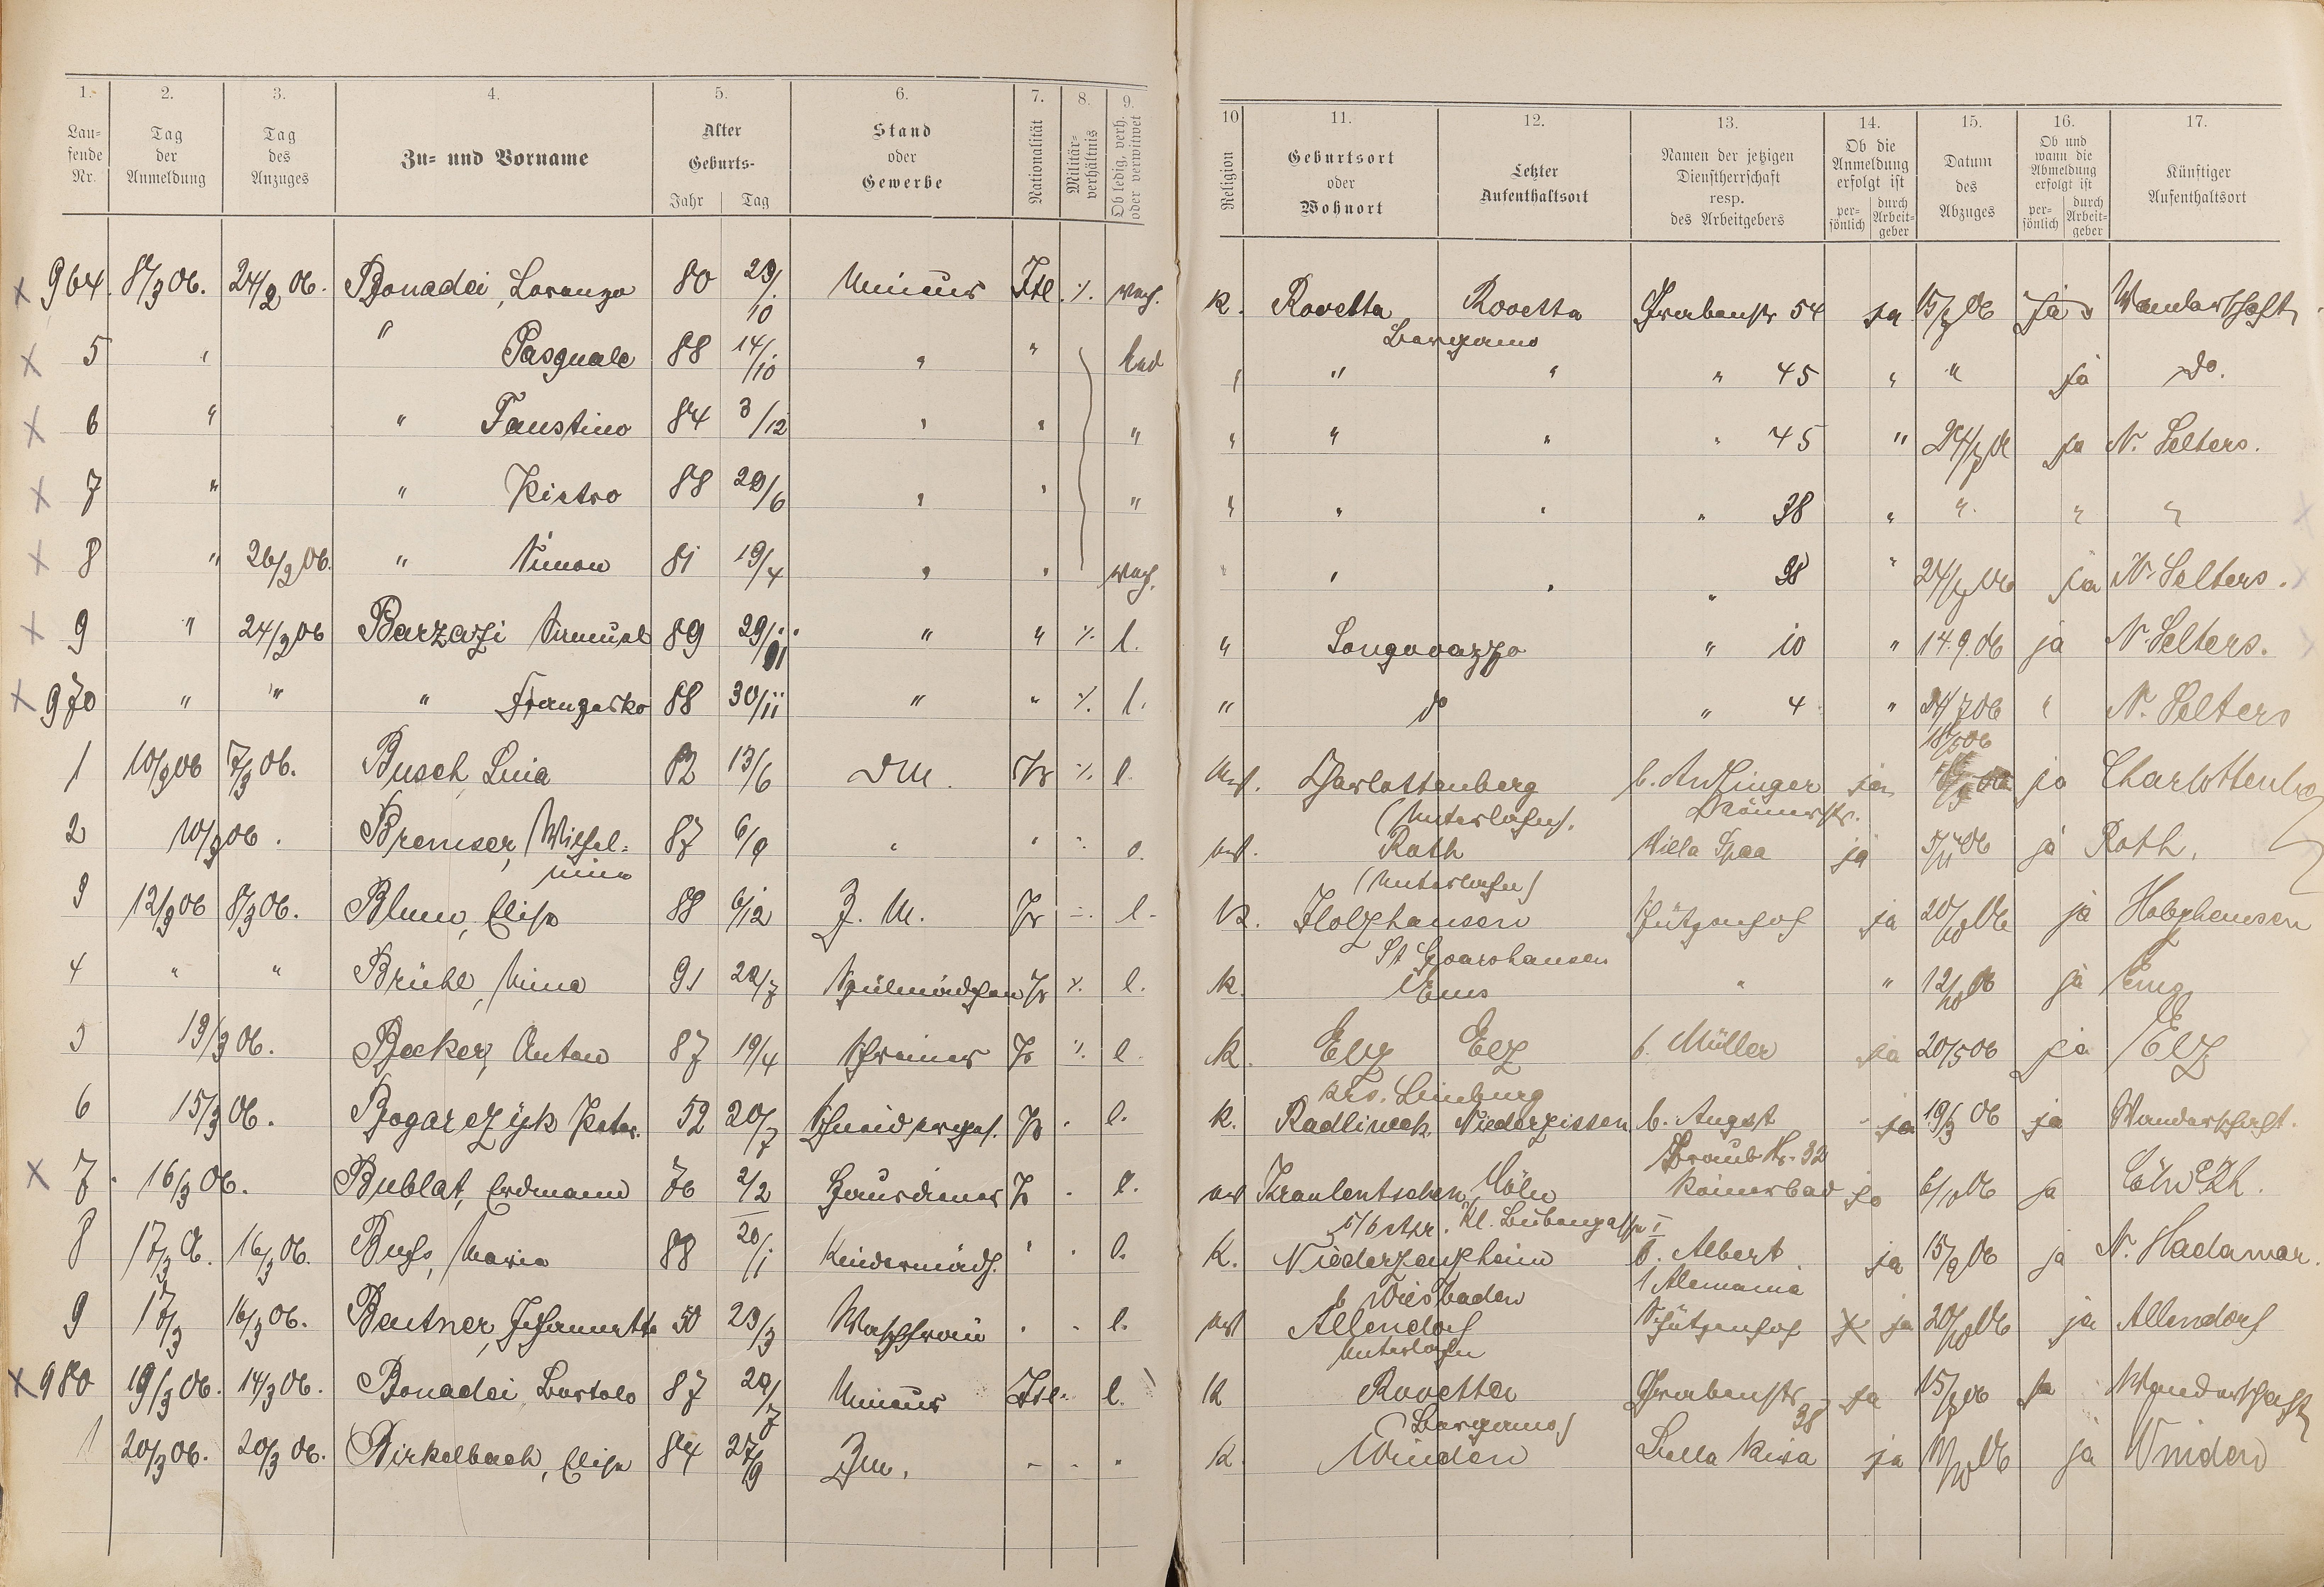 1. 2. 3. 4. 5. 6. 7. 8. 9.
Lau-
fende
Nr.
Tag
der
Anmeldung
Tag
des
Anzuges
Zu- und Vorname
Alter
Geburts-
Jahr Tag
Stand
oder
Gewerbe
Nationalität
Militär-
verhältnis
Ob ledig, verh.
oder verwitwet
10 11. 12. 13. 14. 15. 16. 17.
Religion
Geburtsort
oder
Wohnort
Letzter
Aufenthaltsort
Namen der jetzigen
Dienstherrschaft
resp.
des Arbeitgebers
Ob die
Anmeldung
erfolgt ist
per-
sönlich
durch
Arbeit-
geber
Datum
des
Abzuges
Ob und
wann die
Abmeldung
erfolgt ist
per-
sönlich
durch
Arbeit-
geber
Künftiger
Aufenthaltsort
x 964. 8/3 06. 24/2 06. Bonadei, Lorenzo 80 29/10 Mineur Itl. %. verh. K. Rovetta Rovetta Grabenstr 54 ja 15/7 06 ja Wanderschaft
Bergamo
x 5 " " Pasquale 88 14/10 " " led " " " " 45 " " ja do.
x 6 " " Faustino 84 3/12 " " " " " " " 45 " 24/7 06 ja N. Selters.
x 7 " " Pietro 88 29/6 " " " " " " " 38 " " " "
x 8 " 26/2 06. " Simon 81 19/4 " " verh. " " " " 38 " 24/7 06 ja N. Selters.
x 9 " 24/2 06 Barzazi Samuel 89 29/11 " " %. l. " Songavazzo " 10 " 14.9.06 ja N. Selters.
x 970 " " " Franzesko 88 30/11 " " %. l. " do " 4 " 24/7 06 " N. Selters
18/5 06
1 10/3 06 7/3 06. Busch, Lina 82 13/6 DM. Pr %. l. ev. Charlottenberg b. ja ja Charlottenberg
(Unterlahn). Römerstr.
2 10/3 06. Bremser, Wilhel- 87 6/9 " " ev. Roth Villa Spaa ja 5/11 06 ja Roth.
mine (Unterlahn)
3 12/3 06 8/3 06. Blum, Elise 88 6/12 Z. M. Pr l. K. Holzhausen Schützenhof ja 20/10 06 ja Holzhausen
St Goarshausen
4 " " Brühl, Mina 91 22/7 Spülmädchen Pr %. l. K. Ems " " 12/10 06 ja Ems
5 13/3 06. Becker, Anton 87 19/4 Schreiner Pr %. l. K. Elz Elz b. Müller ja 20/5 06 ja Elz
Krs. Limburg
6 15/3 06. Bogarczyk Peter. 52 20/7 Pr l. K. Radlineck Niederzissen b. Angst ja 19/3 06 ja Wanderschaft.
Graubstr. 32
x 7 16/3 06. Bublat, Erdmann 76 2/2 Hausdiener Pr l. ev Cöln Römerbad ja 6/10 06 ja Cöln Rh.
8 17/3 06. 16/3 06. Maria 88 20/1 Kindermädch. " l. K. Niederzeuzheim b. Albert ja 15/9 06 ja N. Hadamar.
b Wiesbaden Alemania
9 17/3 16/3 06. Bentner, Johannette 50 23/3 Waschfrau l. ev Allendorf Schützenhof ja 20/10 06 ja Allendorf
Unterlahn
x 980 19/3 06. 14/3 06. Bonadei Bortolo 87 20/7 Mineur Itl. l. K Rovetta Grabenstr 38 ja 15/7 06 ja Wanderschaft
(Bergamo)
1 20/3 06. 20/3 06. Birkelbach, Elise 84 27/9 Zm. K. Winden Bella Riva ja ja Winden